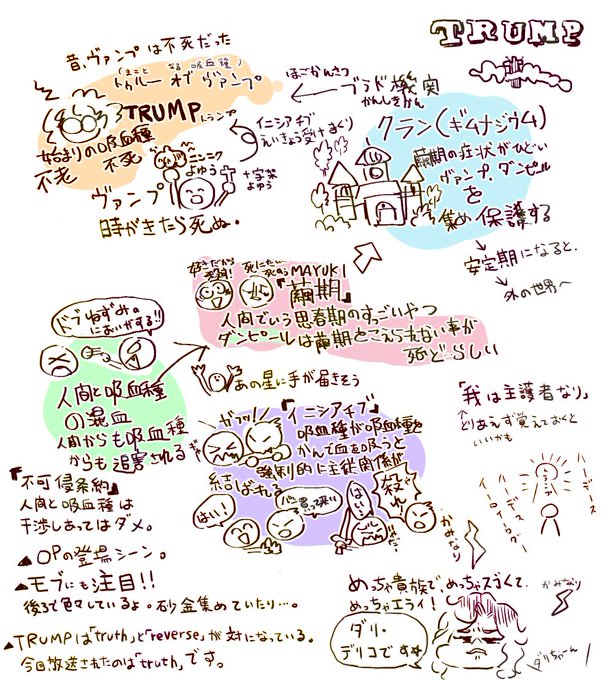 TRUMP
昔、ヴァンプは不死だった
(まこと なる 吸血種)
トゥルー オブ ヴァンプ
TRUMP
トランプ
始まりの吸血種
不老 不死
ニンニク
よゆう
十字架
よゆう
ヴァンプ
時がきたら死ぬ。
ほごかんさつ
← ブラド機関
かんしきかん
イニシアチブ
えいきょう受けまくり
クラン(ギムナジウム)
繭期の症状がひどい
ヴァンプ、ダンピール
を
集め 保護する
安定期になると、
→外の世界へ
好きだから
死にたい…
MAYUKI
『繭期』
人間でいう思春期のすっごいやつ
ダンピールは繭期をこえられない事が
ほとんど…らしい
ドブねずみの
においがする!!
あの星に手が届きそう
人間と吸血種
の混血
人間からも吸血種
からも迫害される
ガブッ
『イニシアチブ』
吸血種が吸血種を
かんで血を吸うと
強制的に主従関係が
結ばれる
はい!
パン買って来い
はい!
「我は主護者なり」
↑とりあえず覚えておくと
いいかも
『不可侵条約』
人間と吸血種は
干渉しあってはダメ。
▲OPの登場シーン。
▲モブにも注目!!
後ろで色々しているよ。砂金集めていたり…。
▲TRUMPは「truth」と「reverse」が対になっている。
今回放送されたのは「truth」です。
かみなり
かみなり
めっちゃ貴族で、めっちゃスゴくて、
めっちゃエライ!
ダリ・
デリコです☆
ダリちゃーん